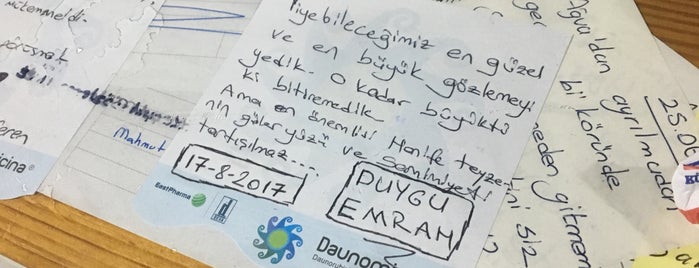 mütemmeldi.
Mahmut
eren
icina®
Yiyebileceğimiz en güzel
ve en büyük gözlemeyi
yedik. O kadar büyüktü
ki bitiremedik
Ama en önemlisi Hanife teyze-
nin güler yüzü ve samimiyeti
tartışılmaz....
17-8-2017
DUYGU
EMRAH
EastPharma
Daunom
Daunoru
Ağva'dan ayrılmadan
bi köründe
neden gitmem
ini siz
25.06